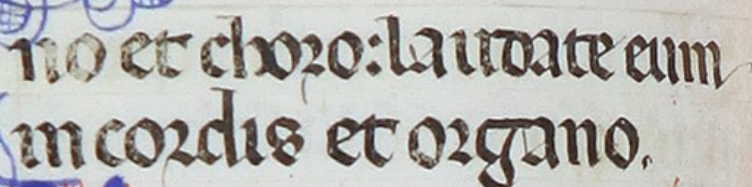 no et choro: laudate eum
in cordis et organo.